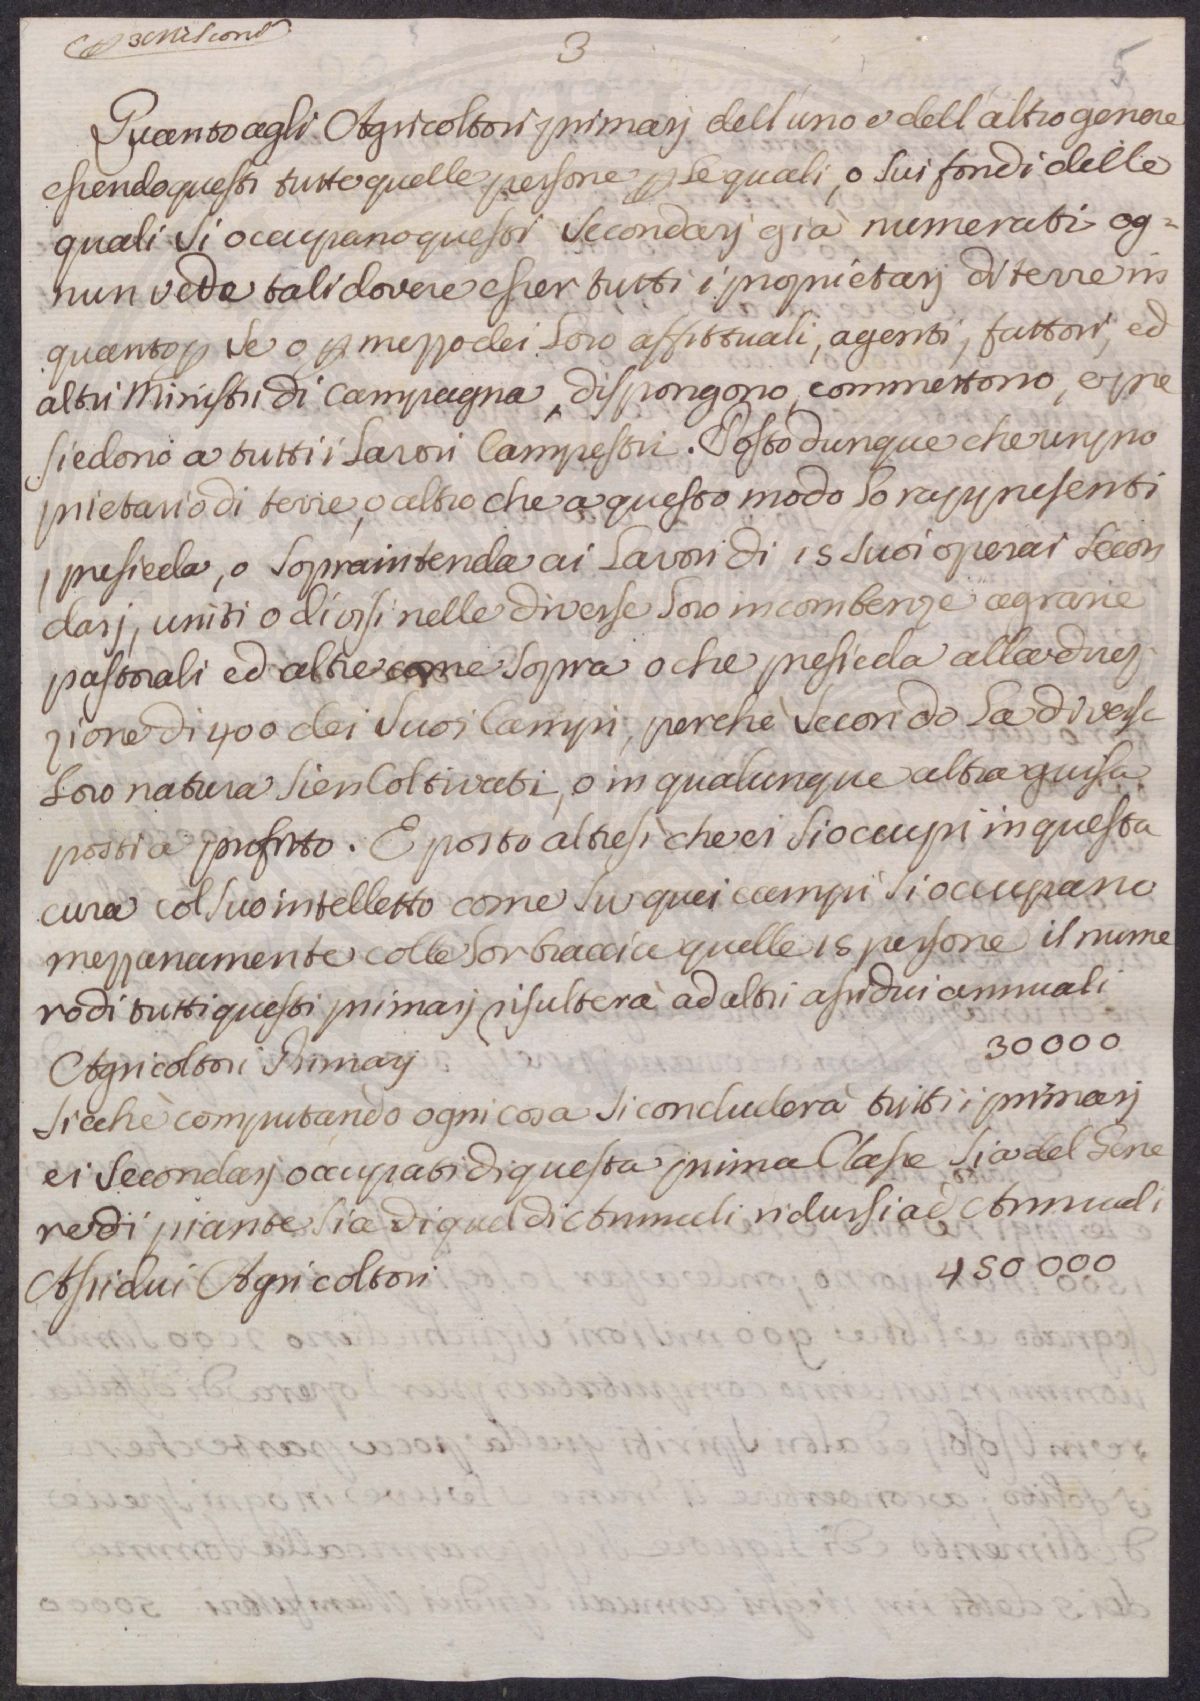 3
5
Quanto agli Agricoltori primarj dell'uno e dell'altro genere
essendo questi tutte quelle persone p le quali, o sui fondi delle
quali si occupano questi secondarj già numerati og=
nun vede tali dovere esser tutti i proprietarj di terre in
quanto p se o p mezzo dei loro affittuali, agenti, fattori, ed
altri Ministri di Campagna, dispongono, commettono, e pre
siedono a tutti i Lavori Campestri. Posto dunque che un pro
prietario di terre, o altro che a questo modo lo rappresenti
presieda, o sopraintenda ai Lavori di 15 suoi operai secon
darj, uniti o divisi nelle diverse loro incombenze agrarie
pastorali ed altre come sopra o che presieda alla direz
zione di 400 dei suoi Campi, perchè secondo la diversa
loro natura sien Coltivati, o in qualunque altra guisa
posti a profitto. E posto altresì che ei si occupi in questa
cura col suo intelletto come su quei campi si occupano
mezzanamente colle lor braccia quelle 15 persone il nume
ro di tutti questi primarj risulterà ad altri assidui annuali
Agricoltori Primarj 30000
Sicchè computando ogni cosa si concluderà tutti i primarj
ei Secondarj occupati di questa prima Classe, sia del Gene
re di piante sia di quel di Animali ridursi ad Annuali
Assidui Agricoltori 450 000